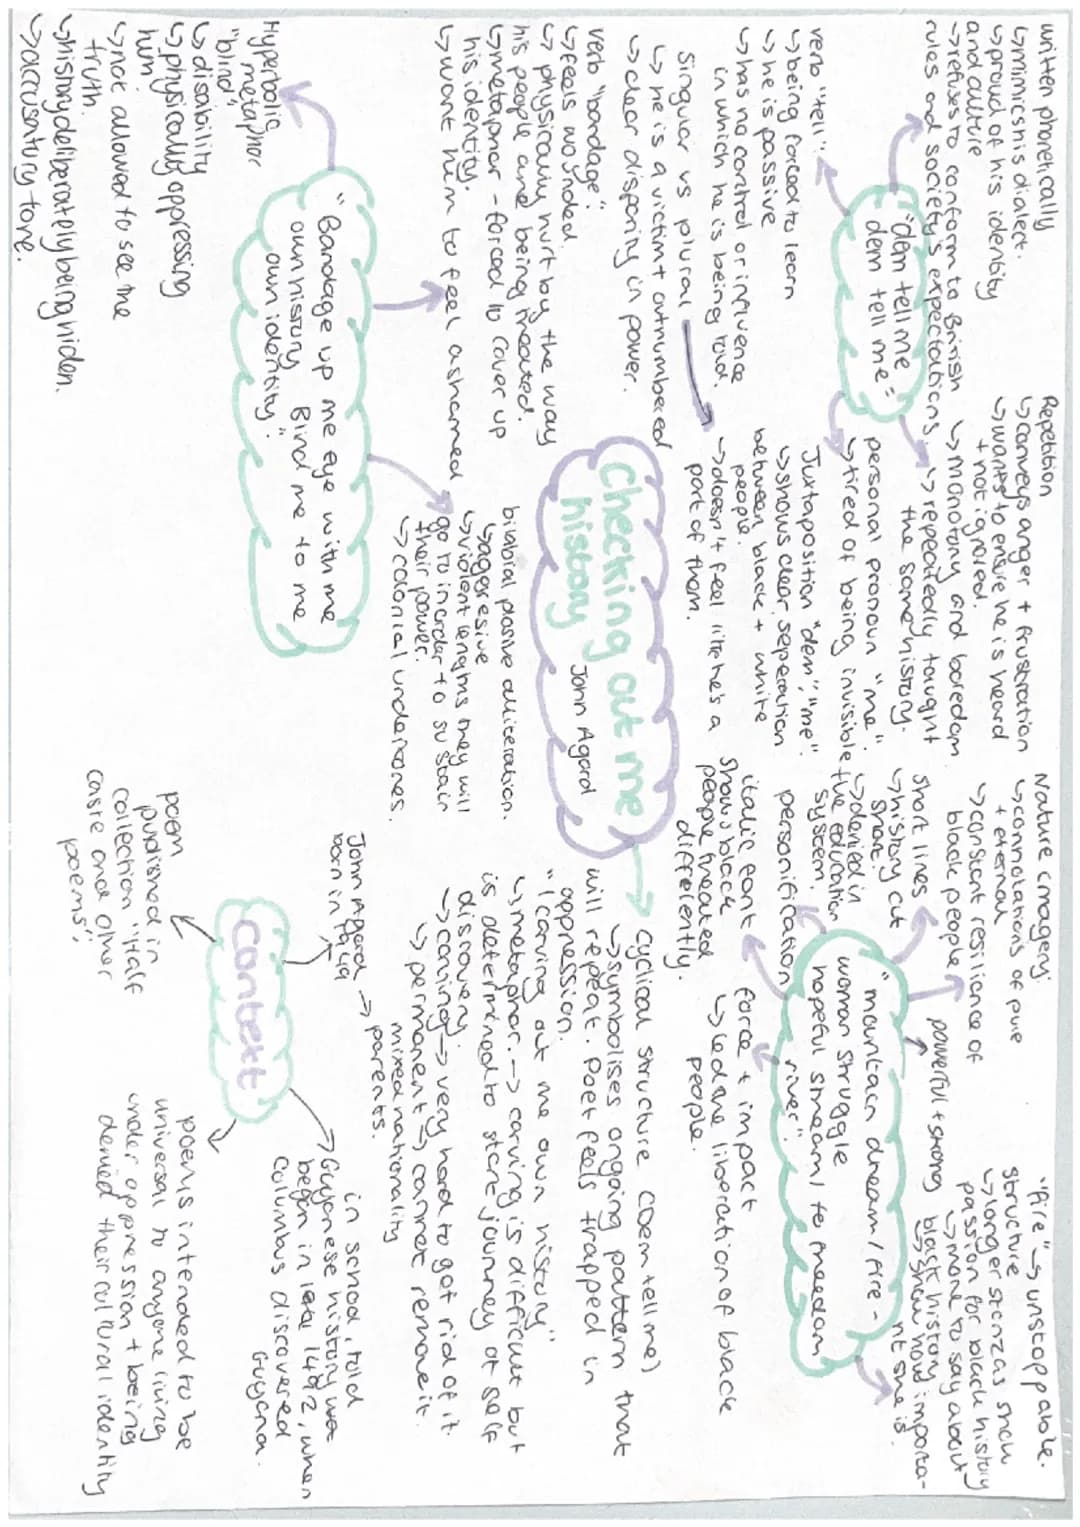 written phonetically
↳mimics his dialect.
↳proud of his identity
and culture
→refuses to conform to British
rules and society's expectations.
"dem tell me
dem tell me"
verb "tell":
↳being forced to learn
→he is passive
↳has no control or influence
in which he is being told.
Singular vs plural
↳he is a victim + outnumbered
→clear disparity in power.
→doesn't feel like he's a
part of them.
Repetition
↳conveys anger + frustration
→wants to ensure he is heard
+ not ignored.
↳monotony and boredom
→repeatedly taught
the same history.
personal pronoun "me".
↳tired of being invisible
Juxtaposition "dem", "me".
↳shows clear seperation
between black + white
people.
Nature imagery:
↳connotations of pure
+ eternal
→constant resiliance of
black people
short lines
→history cut
short.
↳denied in
the education
system.
personification
italic font
shows black
people treated
differently.
"mountain dream / fire-
woman struggle
hopeful stream / to freedom
river".
powerful + strong
"fire"→unstoppable.
structure
↳longer stanzas show
passion for black history
→more to say about
black history
↳show how importa-
nt she is.
force + impact
↳led the liberation of black
people.
Checking out me
history
John Agard
→ cyclical structure (dem tell me)
→symbolises ongoing pattern that
will repeat. Poet feels trapped in
oppression.
"I carving out me own history"
↳metaphor → carving is difficult but
is determined to start journey of self
discovery.
→carving → very hard to get rid of it.
↳permanent → cannot remove it.
verb "bandage":
↳feels wounded.
↳physically hurt by the way
his people are being treated.
↳metaphor - forced to cover up
his identity.
↳want him to feel ashamed
bilabial plosive alliteration.
↳aggresive
↳violent lengths they will
go to in order to sustain
their power.
→colonial undertones.
"Bandage up me eye with me
own history Blind me to me
own identity".
Hyperbolic
metaphor
"blind"
↳disability
↳physically oppressing
him.
↳not allowed to see the
truth.
↳history deliberately being hiden.
→accusatory tone.
Context
John Agard
born in 1949
→ mixed nationality
parents.
→in school, told
Guyanese history was
began in 1492, when
Columbus discovered
Guyana.
poem
published in
collection "Half
caste and other
poems";
poem is intended to be
universal to anyone living
under oppression + being
denied their cultural identity